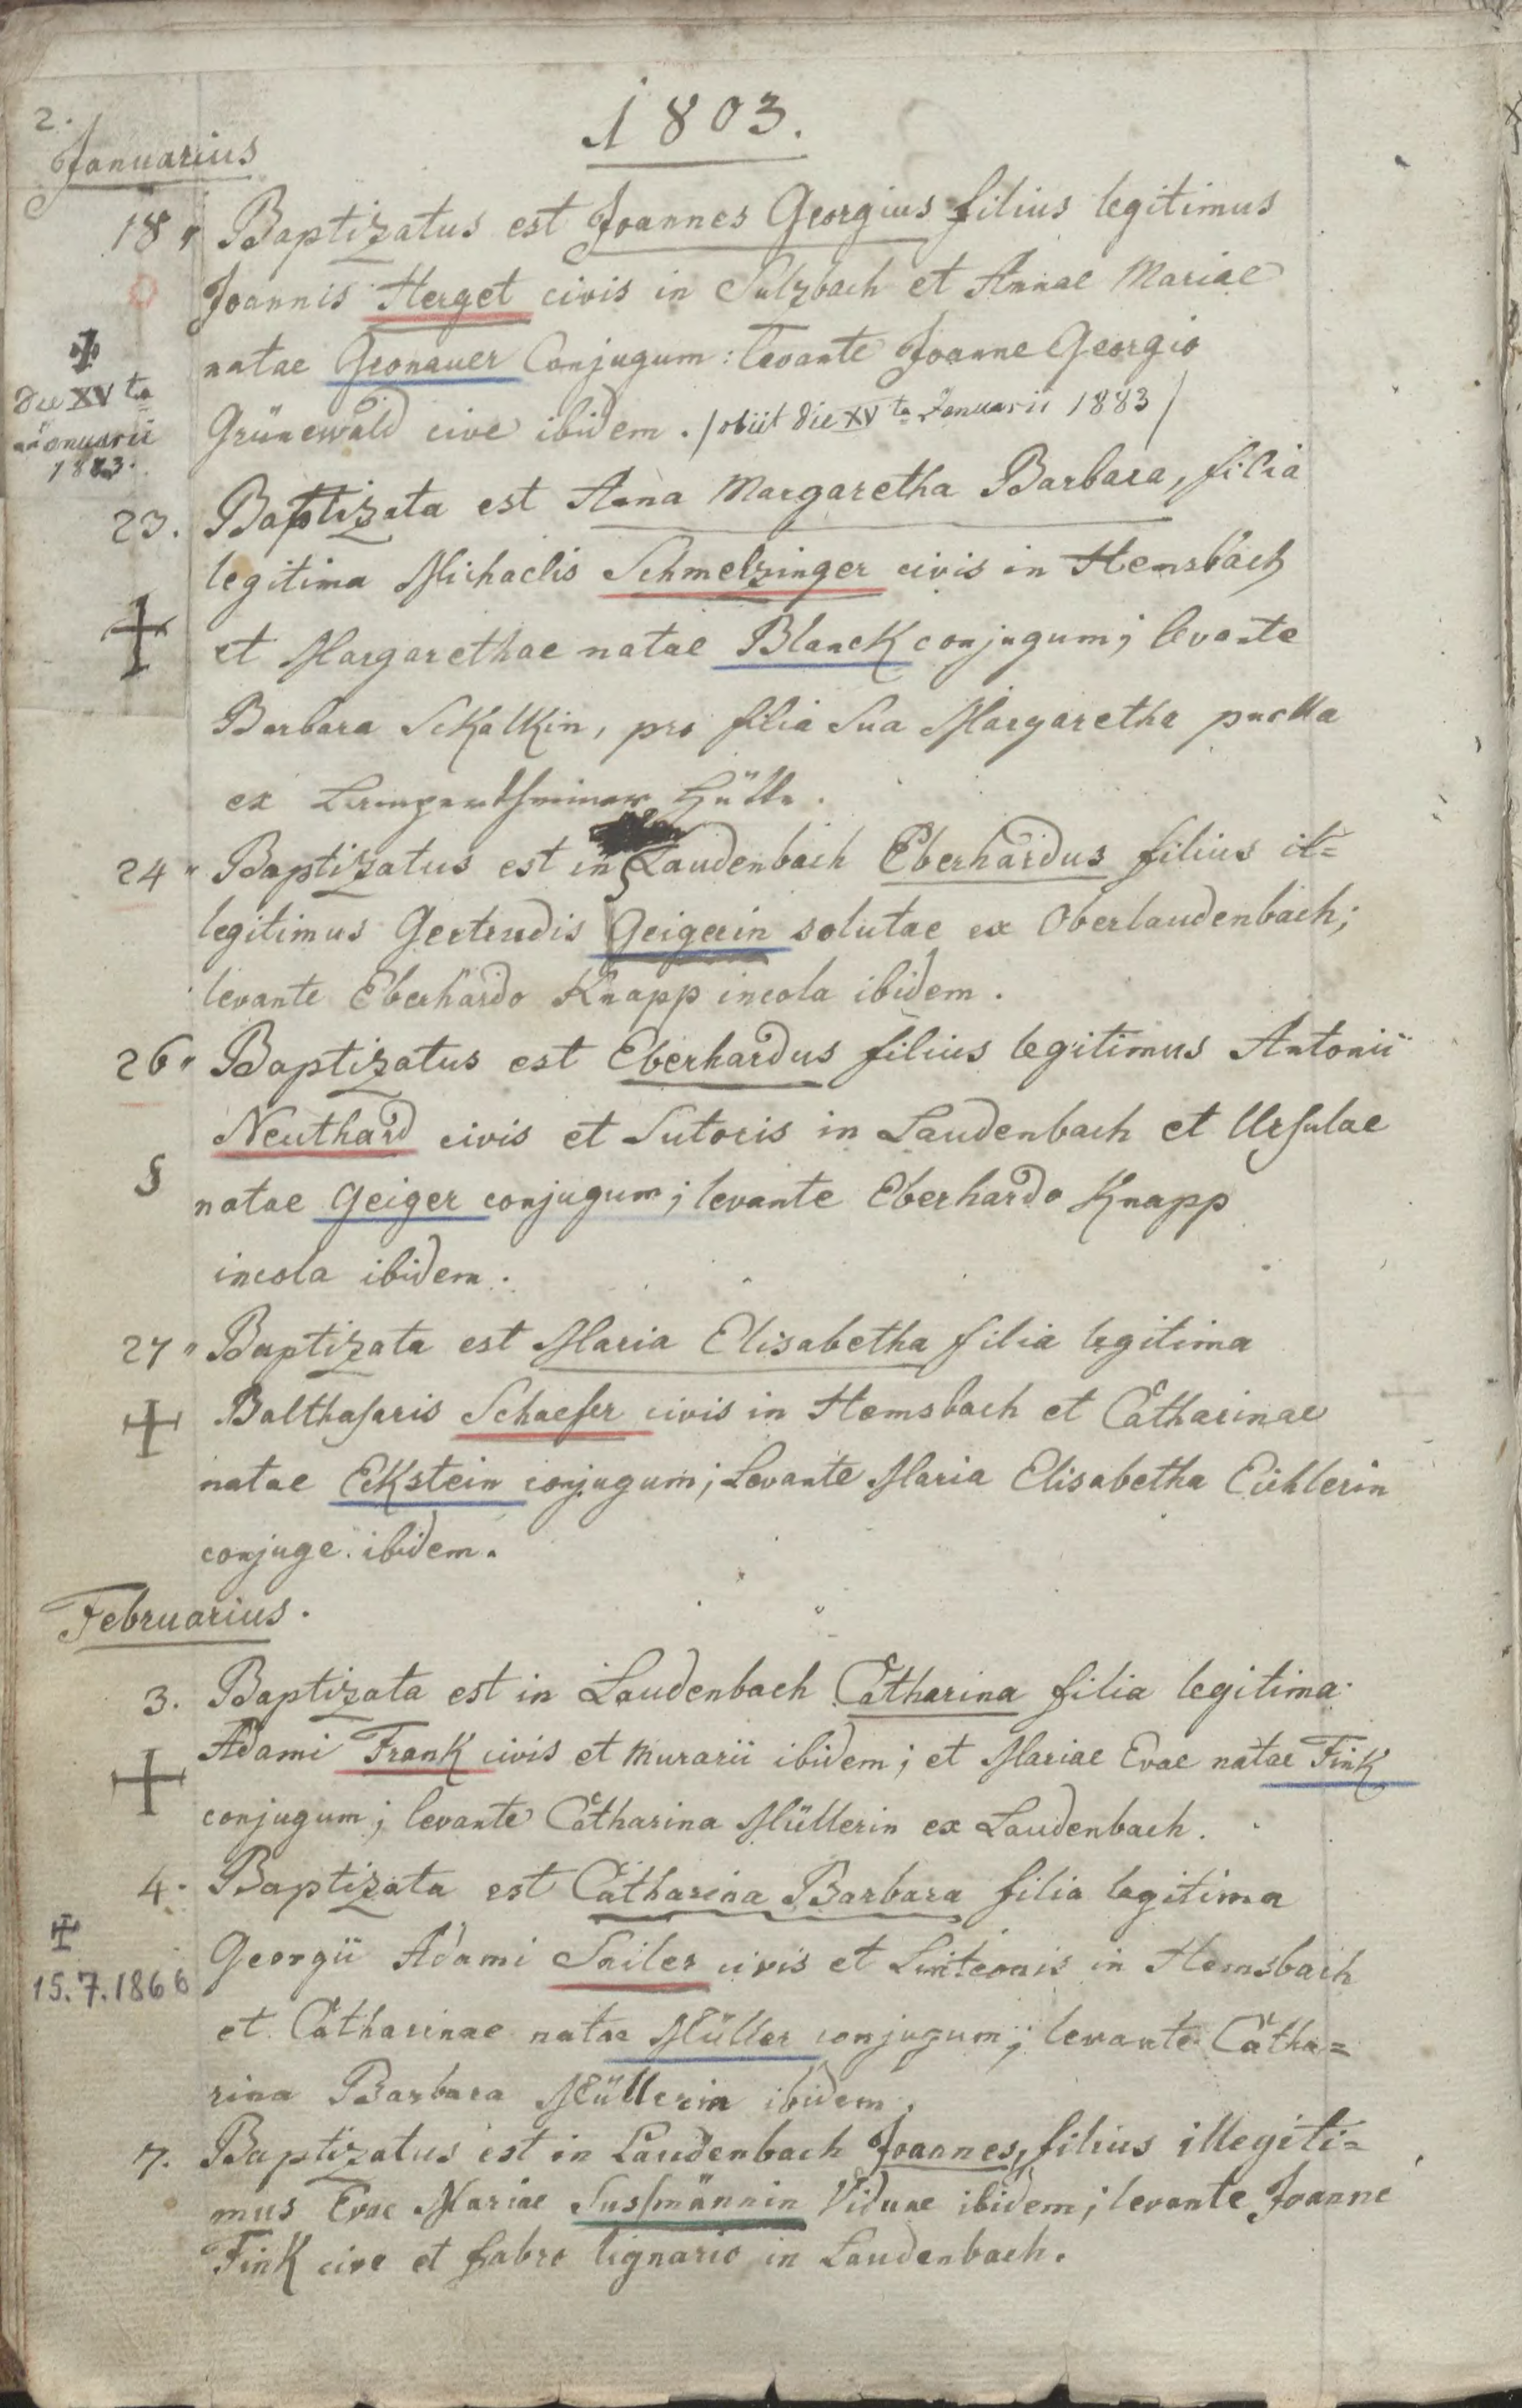 2.
1803.
Januarius
18 " Baptizatus est Joannes Georgius filius legitimus
Joannis Herget civis in Sulzbach et Annae Mariae
natae Gronauer Conjugum : levante Joanne Georgio
Grünewald cive ibidem . / obiit die XV ta Januarii 1883 /
die XV ta
Januarii
1883.
23. Baptizata est Anna Margaretha Barbara, filia
legitima Michaelis Schmelzinger civis in Hemsbach
et Margarethae natae Blanck conjugum; levante
Barbara Schalkin, pro filia Sua Margaretha puella
ex Hütte.
24 " Baptizatus est in Laudenbach Eberhardus filius il=
legitimus Gertrudis Geigerin solutae ex Oberlaudenbach;
levante Eberhardo Knapp incola ibidem .
26 " Baptizatus est Eberhardus filius legitimus Antonii
Neuthard civis et Sutoris in Laudenbach et Ursulae
§ natae Geiger conjugum; levante Eberhardo Knapp
incola ibidem .
27 " Baptizata est Maria Elisabetha filia legitima
Balthasaris Schaefer civis in Hemsbach et Catharinae
natae Eckstein conjugum; Levante Maria Elisabetha Eichlerin
conjuge ibidem.
Februarius .
3. Baptizata est in Laudenbach Catharina filia legitima
Adami Frank civis et murarii ibidem ; et Mariae Evae natae Fink
conjugum ; levante Catharina Müllerin ex Laudenbach .
4. Baptizata est Catharina Barbara filia legitima
Georgii Adami Sailer civis et Linteonis in Hemsbach
15.7.1866
et Catharinae natae Müller conjugum; levante Catha=
rina Barbara Müllerin ibidem .
7. Baptizatus est in Laudenbach Joannes, filius illegiti=
mus Evae Mariae Sussmännin Viduae ibidem; levante Joanne
Fink cive et fabro lignario in Laudenbach.